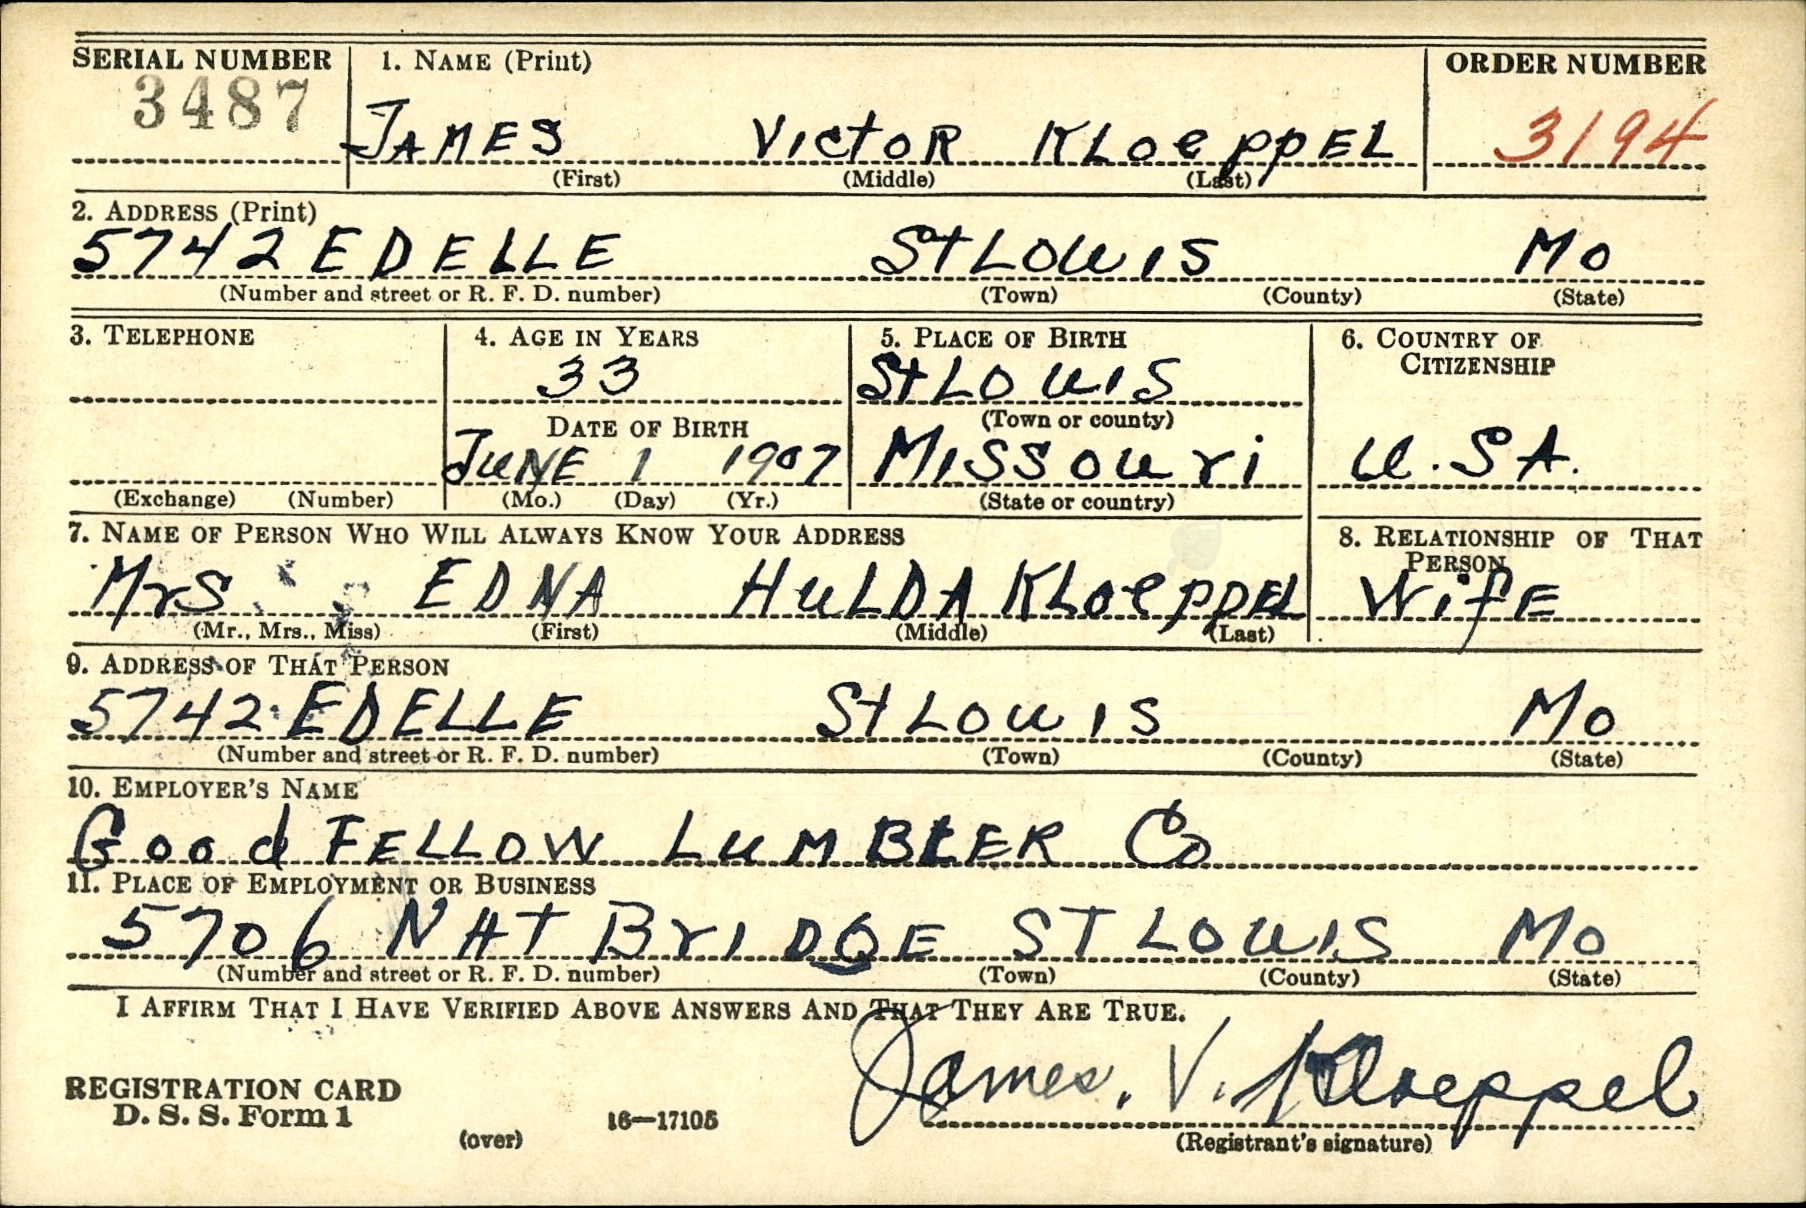 SERIAL NUMBER 1. NAME (Print) ORDER NUMBER
3487 JAMES VICTOR KLOEPPEL 3194
(First) (Middle) (Last)
2. ADDRESS (Print)
5742 EDELLE ST LOUIS MO
(Number and street or R. F. D. number) (Town) (County) (State)
3. TELEPHONE 4. AGE IN YEARS 5. PLACE OF BIRTH 6. COUNTRY OF CITIZENSHIP
33 ST LOUIS
DATE OF BIRTH (Town or county)
JUNE 1 1907 MISSOURI U.S.A.
(Exchange) (Number) (Mo.) (Day) (Yr.) (State or country)
7. NAME OF PERSON WHO WILL ALWAYS KNOW YOUR ADDRESS 8. RELATIONSHIP OF THAT PERSON
Mrs EDNA HULDA KLOEPPEL WifE
(Mr., Mrs., Miss) (First) (Middle) (Last)
9. ADDRESS OF THAT PERSON
5742 EDELLE St LOUIS MO
(Number and street or R. F. D. number) (Town) (County) (State)
10. EMPLOYER'S NAME
GoodFELLOW LUMBER Co
11. PLACE OF EMPLOYMENT OR BUSINESS
5706 NAT BRIDGE ST LOUIS MO
(Number and street or R. F. D. number) (Town) (County) (State)
I AFFIRM THAT I HAVE VERIFIED ABOVE ANSWERS AND THAT THEY ARE TRUE.
James. V. Kloeppel
REGISTRATION CARD
D. S. S. Form 1 16—17105
(over) (Registrant's signature)